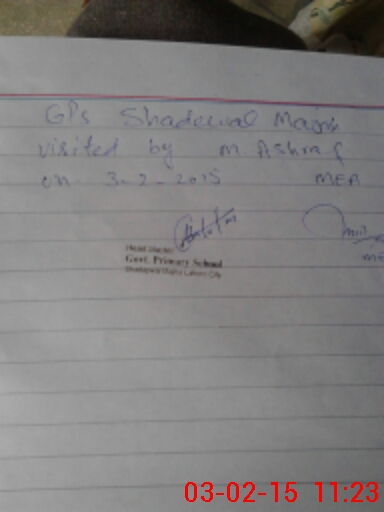 GPs Shadewal Majha
visited by M. Ashraf
on 3-2-2015 MEA
Head Master
Govt. Primary School
Shadewal Majha Lahore City
03-02-15 11:23